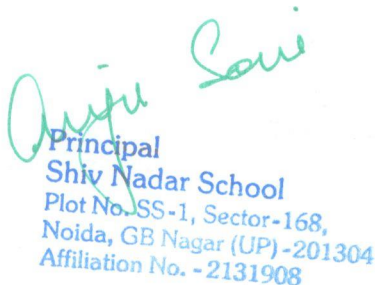 Anju Soni
Principal
Shiv Nadar School
Plot No. SS-1, Sector-168,
Noida, GB Nagar (UP)-201304
Affiliation No. - 2131908